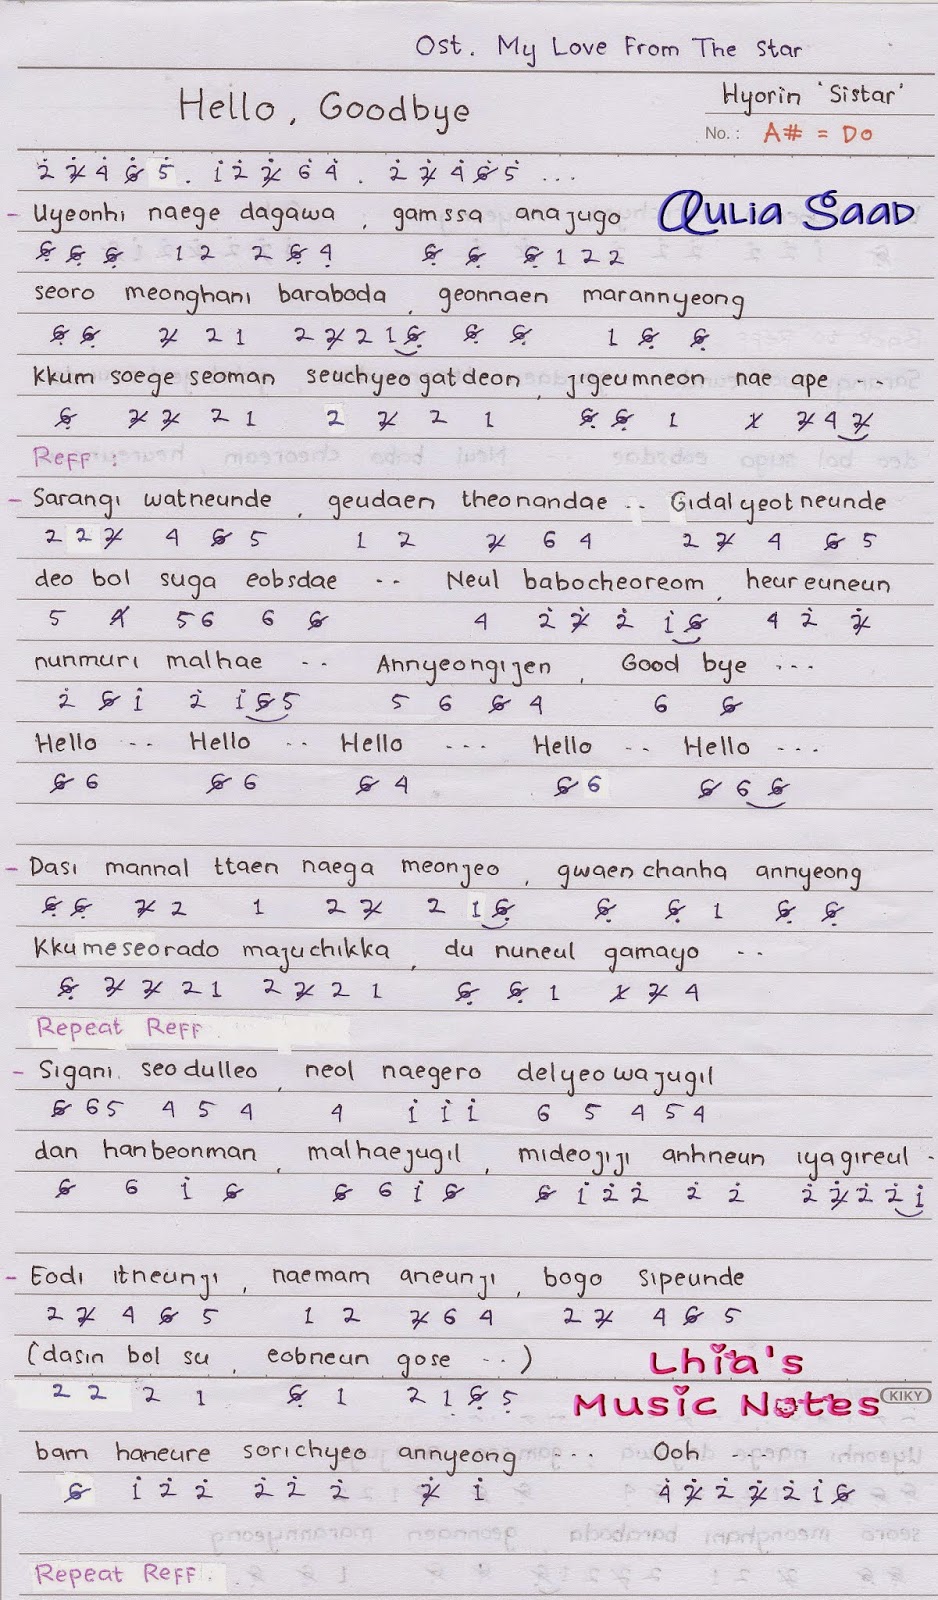 Ost. My Love From The Star
Hello, Goodbye
Hyorin 'Sistar'
No. : A# = Do
2 2 4 6 5 . 1 2 2 6 4 . 2 2 4 6 5 ...
- Uyeonhi naege dagawa , gamssa anajugo
Qulia Saad
6 6 6 1 2 2 6 4 6 6 6 1 2 2
seoro meonghani baraboda , geonnaen marannyeong
6 6 2 2 1 2 2 2 1 6 6 6 1 6 6
Kkum soege seoman seuchyeo gatdeon , jigeumneon nae ape ...
6 2 2 2 1 2 2 2 1 6 6 1 1 2 4 2
Reff :
- Sarangi watneunde , geudaen theonandae .. Gidalyeotneunde
2 2 2 4 6 5 1 2 2 6 4 2 2 4 6 5
deo bol suga eobsdae .. Neul babocheoreom , heureuneun
5 4 5 6 6 6 4 2 2 2 1 6 4 2 2
nunmuri malhae .. Annyeongijen , Good bye ...
2 6 1 2 1 6 5 5 6 6 4 6 6
Hello .. Hello .. Hello ... Hello .. Hello ...
6 6 6 6 6 4 6 6 6 6 6
- Dasi mannal ttaen naega meonjeo , gwaenchanha annyeong
6 6 2 2 1 2 2 2 1 6 6 6 1 6 6
Kkumeseorado majuchikka , du nuneul gamayo ..
6 2 2 2 1 2 2 2 1 6 6 1 1 2 4
Repeat Reff
- Sigani seodulleo , neol naegero delyeowajugil
6 6 5 4 5 4 4 1 1 1 6 5 4 5 4
dan hanbeonman , malhaejugil , mideojiji anhneun iyagireul .
6 6 1 6 6 6 1 6 6 1 2 2 2 2 2 2 2 2 1
- Eodi itneunji , naemam aneunji , bogo sipeunde
2 2 4 6 5 1 2 2 6 4 2 2 4 6 5
(dasin bol su , eobneun gose ..)
Lhia's
2 2 2 1 6 1 2 1 6 5
Music Notes
KIKY
bam haneure sorichyeo annyeong ... Ooh ...
6 1 2 2 2 2 2 2 1 4 2 2 2 2 1 6
Repeat Reff.